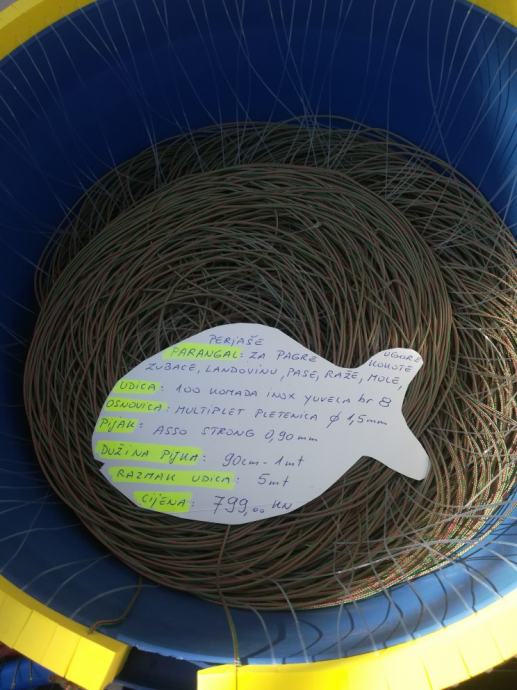 PERJAŠE
PARANGAL: ZA PAGRE UGORE
ZUBACE, LANDOVINU, PASE, RAŽE, MOLE, KOKOTE
UDICA: 100 KOMADA INOX YUVELA br 8
OSNOVICA: MULTIPLET PLETENICA Ø 1,5mm
PIJAK: ASSO STRONG 0,90mm
DUŽINA PIJKA: 90cm - 1mt
RAZMAK UDICA: 5mt
CIJENA: 799,00 KN